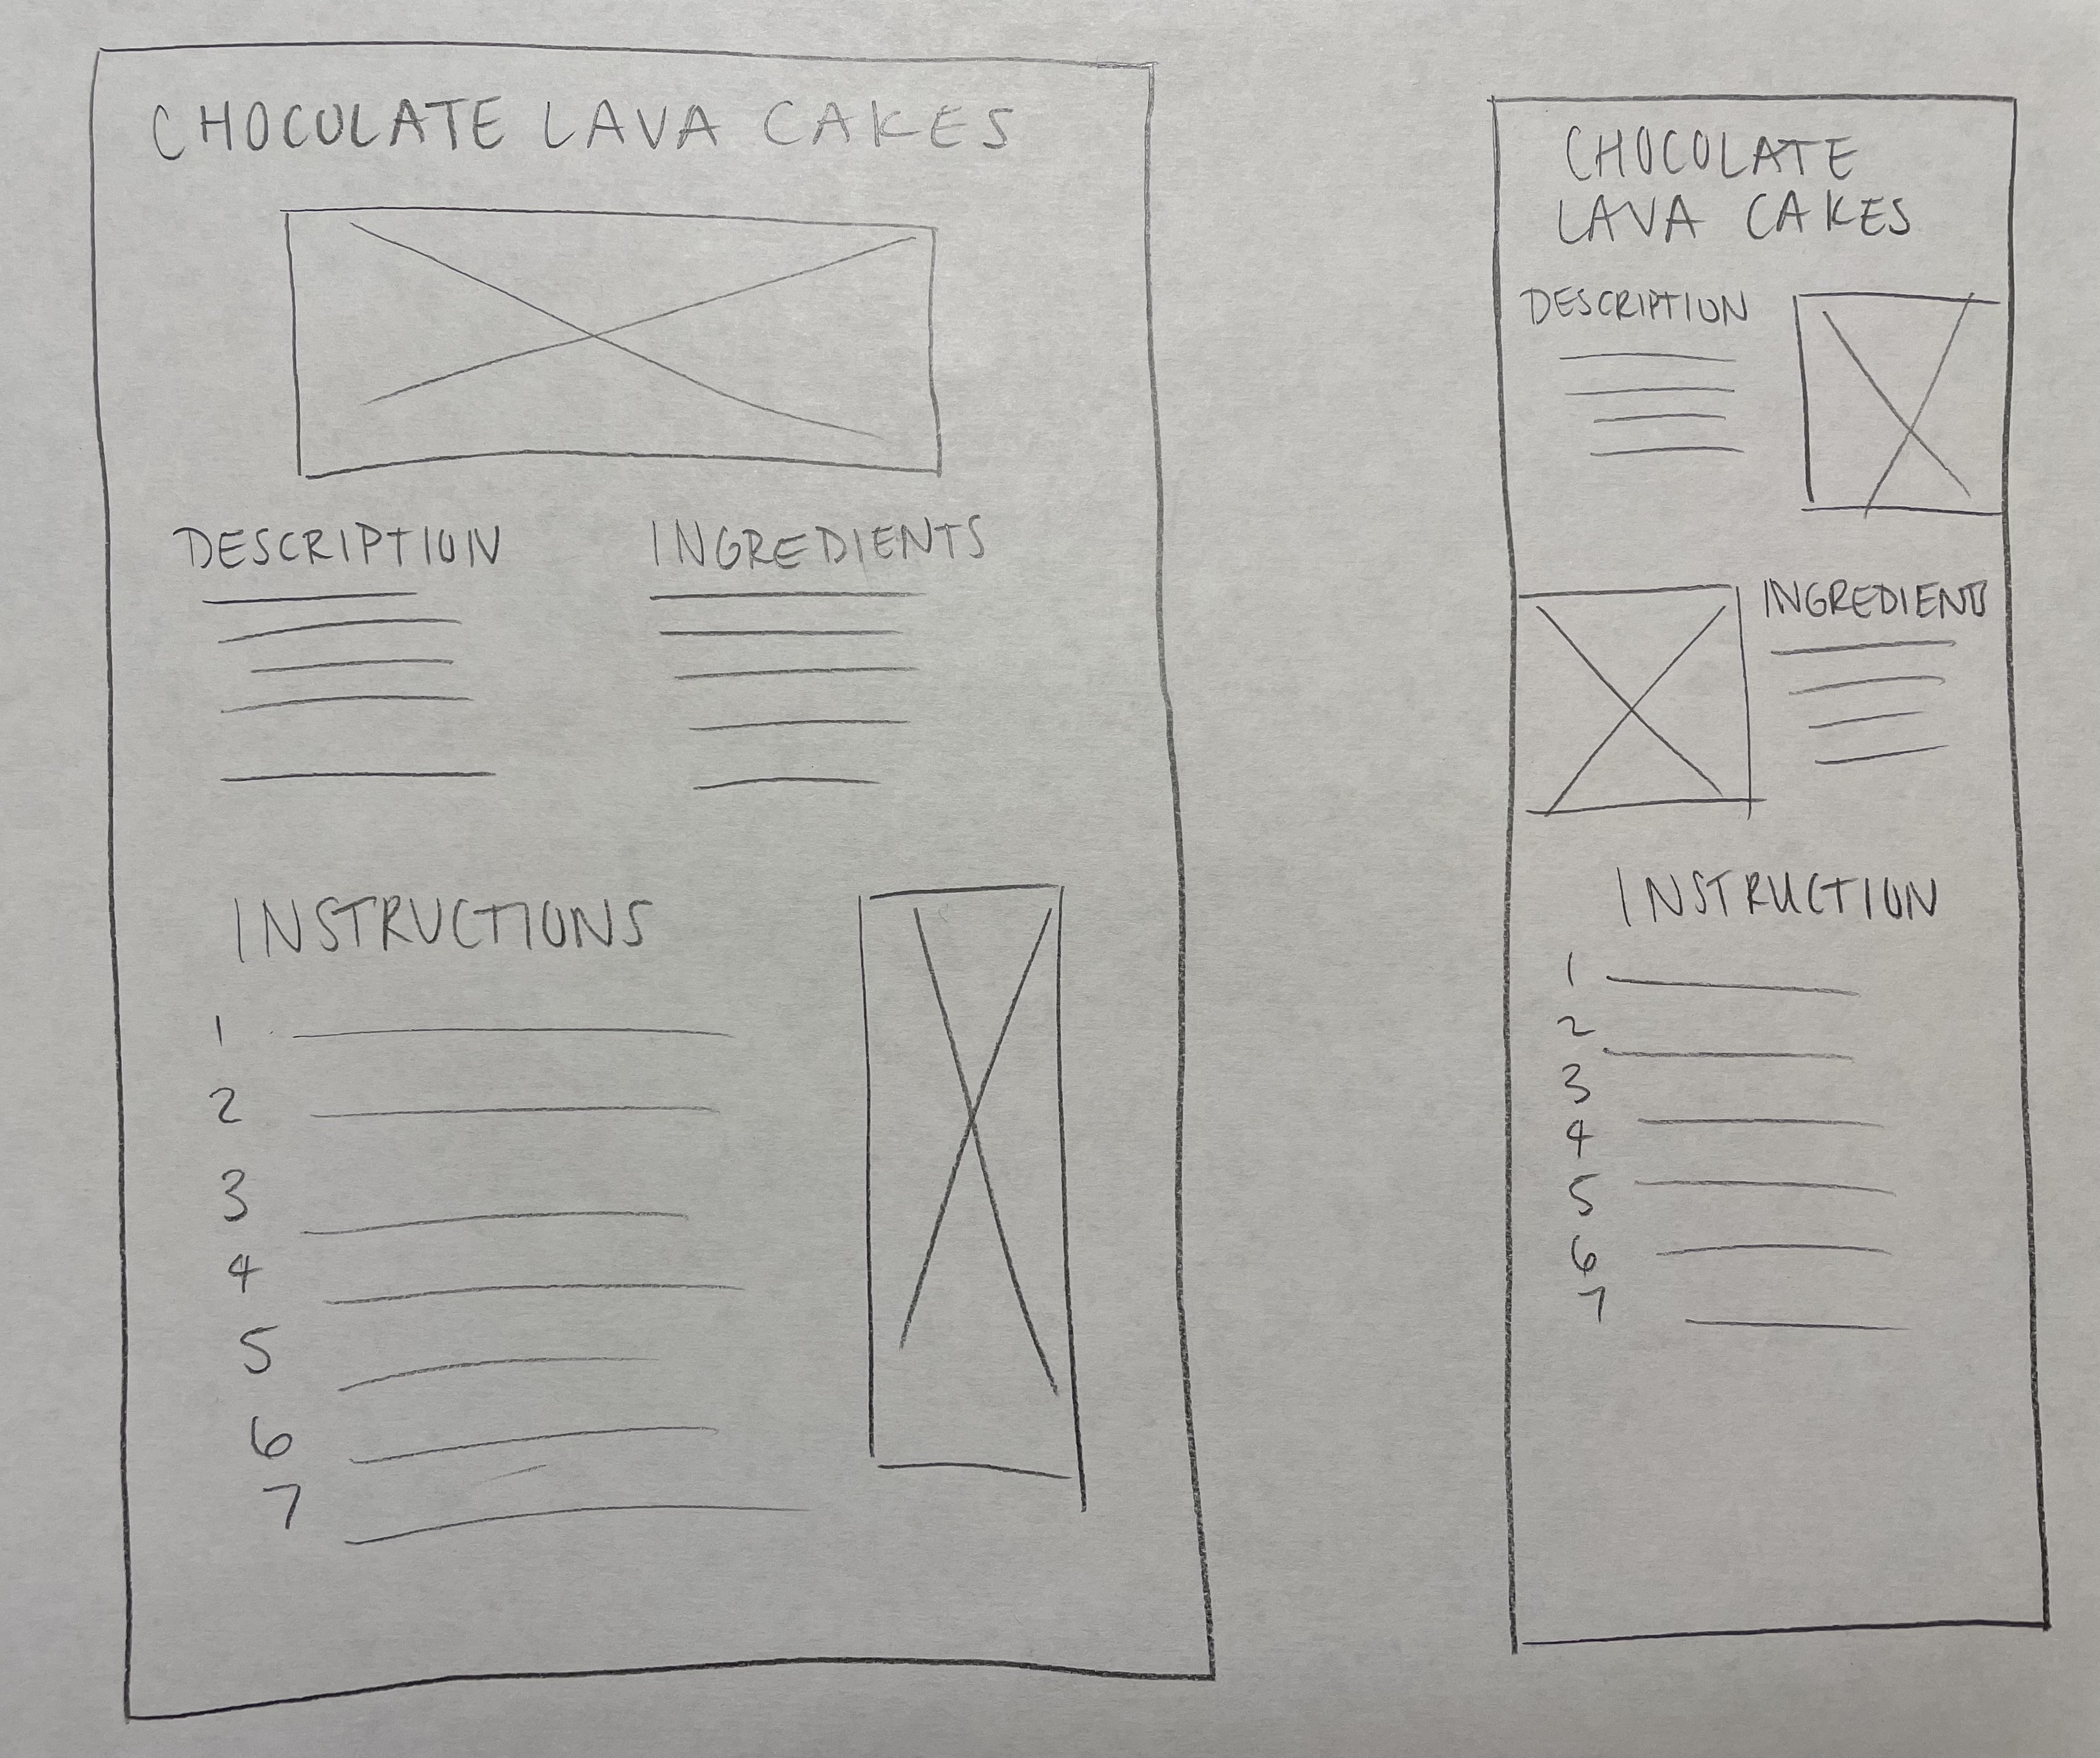 CHOCOLATE LAVA CAKES
DESCRIPTION
INGREDIENTS
INSTRUCTIONS
1
2
3
4
5
6
7
CHOCOLATE
LAVA CAKES
DESCRIPTION
INGREDIENTS
INSTRUCTION
1
2
3
4
5
6
7